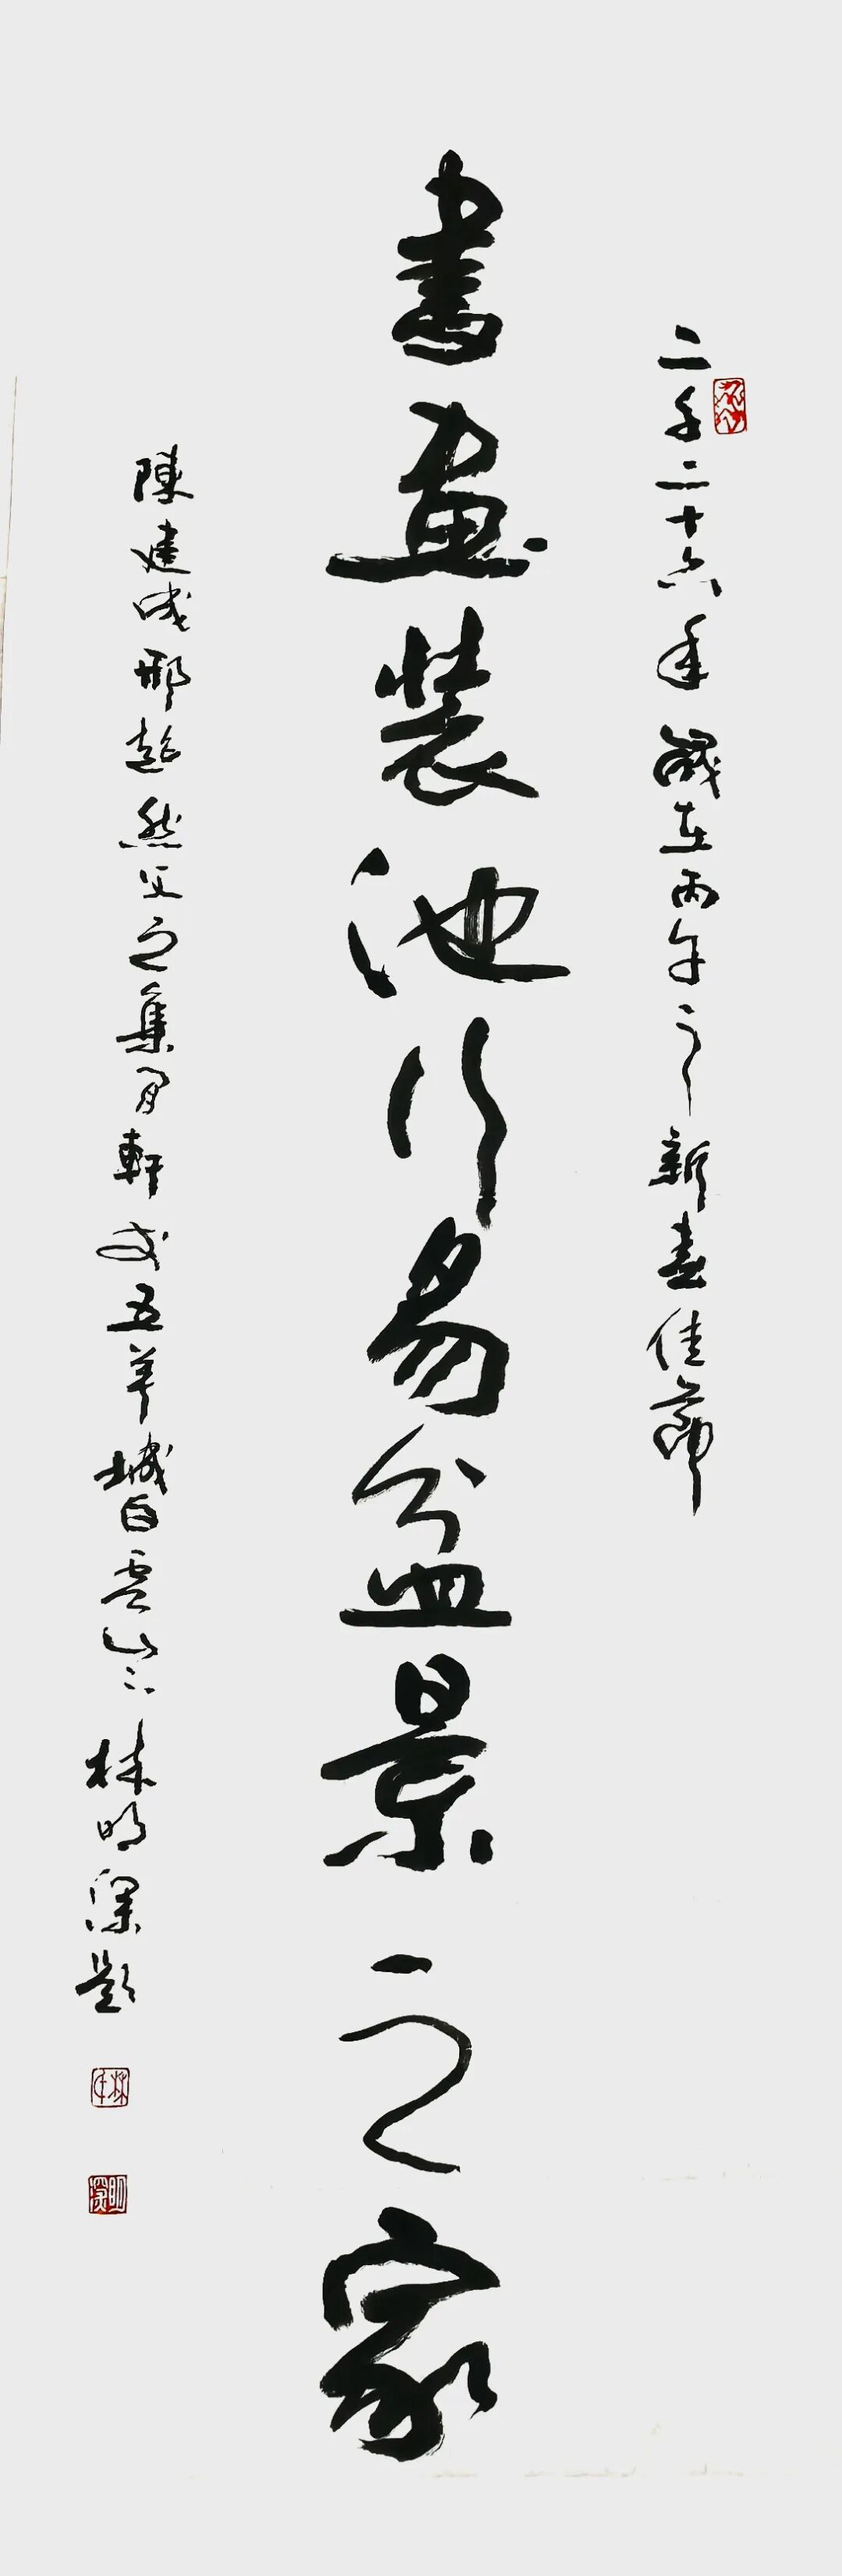 二千二十六年歲在丙午之新春佳節
書畫裝池行易盆景之家
陳建成邢趁然父之集月軒 五羊城白雲山下林明深題
林
明深